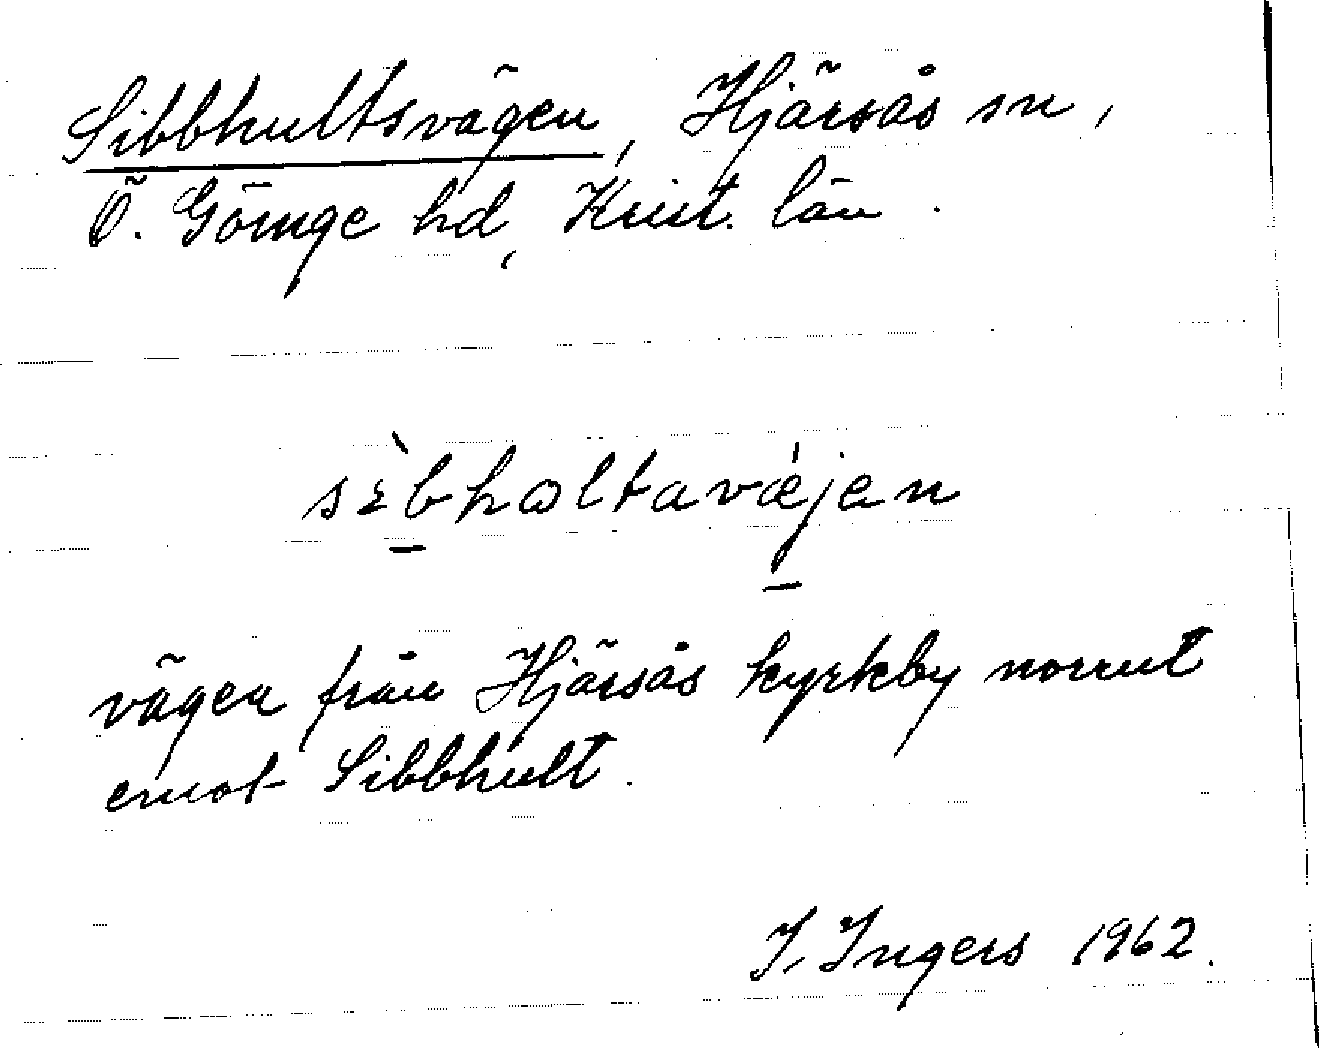 Sibbhultsvägen, Hjärsås sn,
Ö. Göinge hd, Krist. län.
sèbhɷltavǽjen
vägen från Hjärsås kyrkby norrut
emot Sibbhult.
I. Ingers 1962.